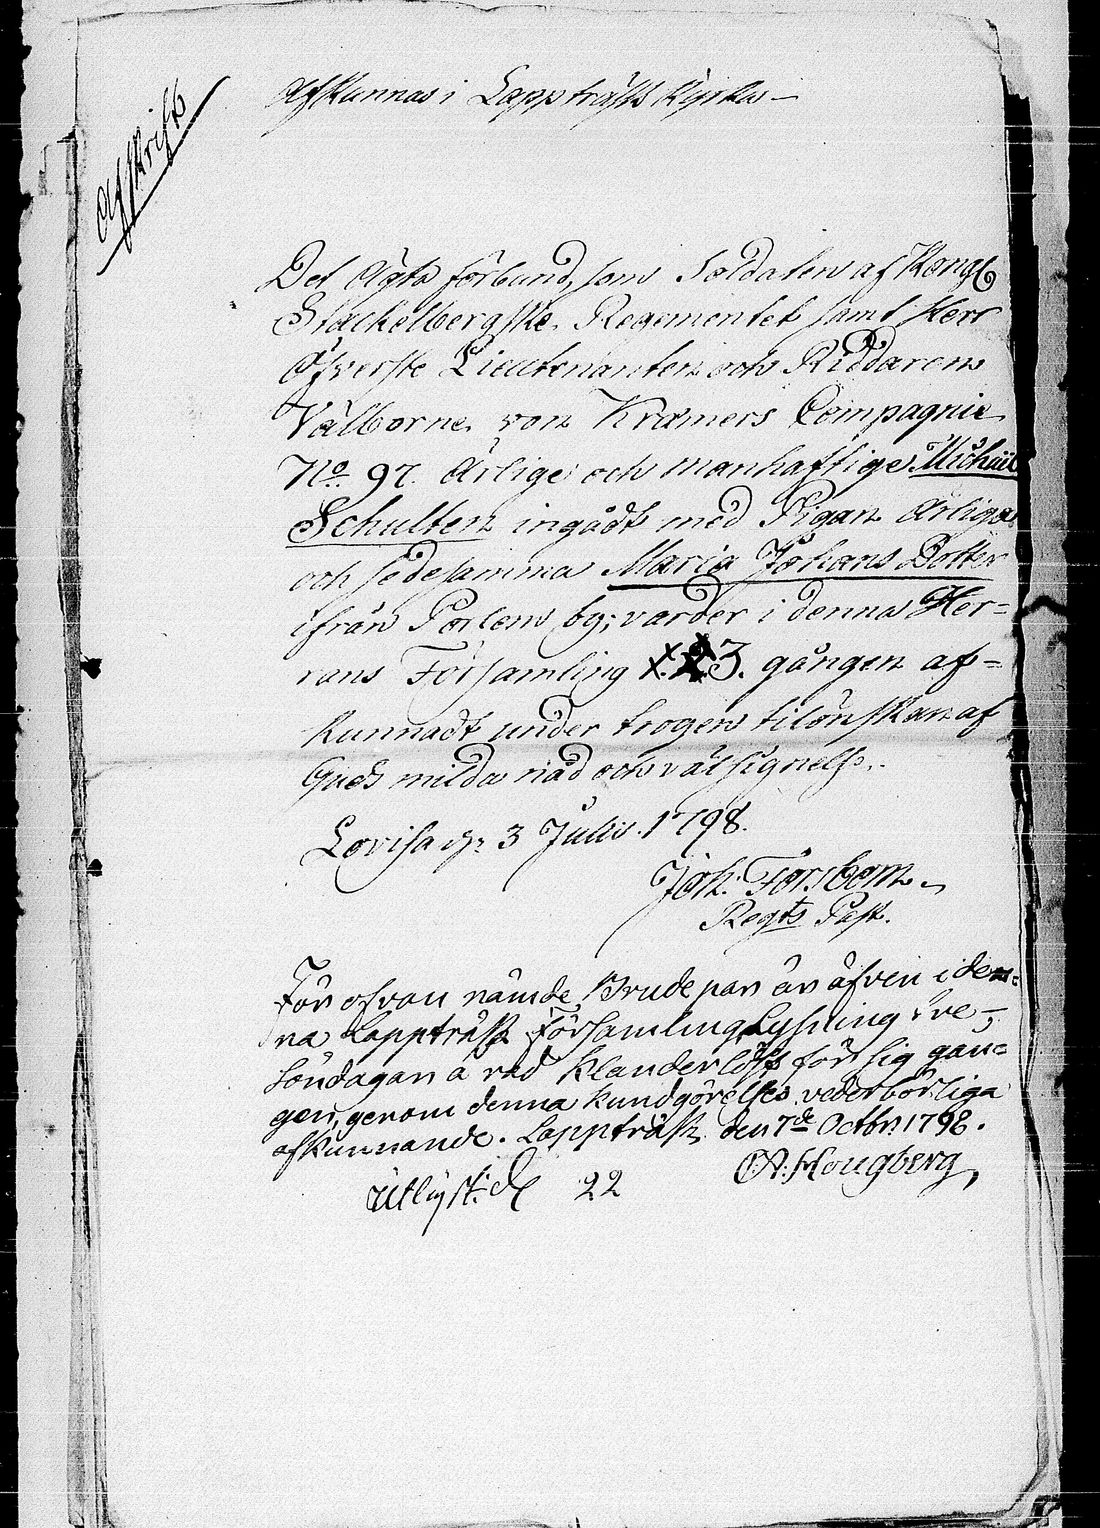 Afskrift
Afkunnas i Lappträsk Kyrka –
Det Ägta förbund, som Soldaten af Kongl
Stackelbergske Regementet samt Herr
Öfverste Lieutenanten och Riddarens
Välborne von Kræmers Compagnie
No. 97. Ärlige och manhaftige Michael
Schulten ingådt med Pigan Ärliga
och sedesamma Maria Johans Dotter
ifrån Porlom by; varder i denna Her=
rans Församling 1. 2. 3. gången af=
kunnadt under trogen tilönskan af
Guds milda nåd och välsignelse.
Lovisa d. 3 Julii 1798.
Joh: Forsbom
Regts Past.
För ofvan nämde Brude par är äfven i den=
na Lappträsk Församling Lysning tre
söndagar å rad klanderlöst för sig gån=
gen, genom denna kundgörelses vederbörliga
afkunnande. Lappträsk den 7de Octbr. 1798.
A: Hougberg
Utlyst. d 22